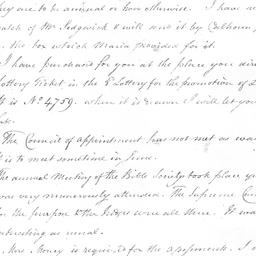 one to be animal or how otherwise. I have re
watch of Mr. Sedgwick & will send it by Calhoun,
the box which Maria provided for it.
I have purchased for you at the place you dire
Lottery Ticket in the Lottery for the promotion of
it is No. 4759. when it is drawn I will let you
The Council of appointment has not met as was
it is to meet sometime in June.
The annual Meeting of the Bible Society took place y
was very numerously attended. The Supreme Cou
for the purpose & the Judges were all there. It was
interesting as usual.
Mrs. money is required for the apartments. I